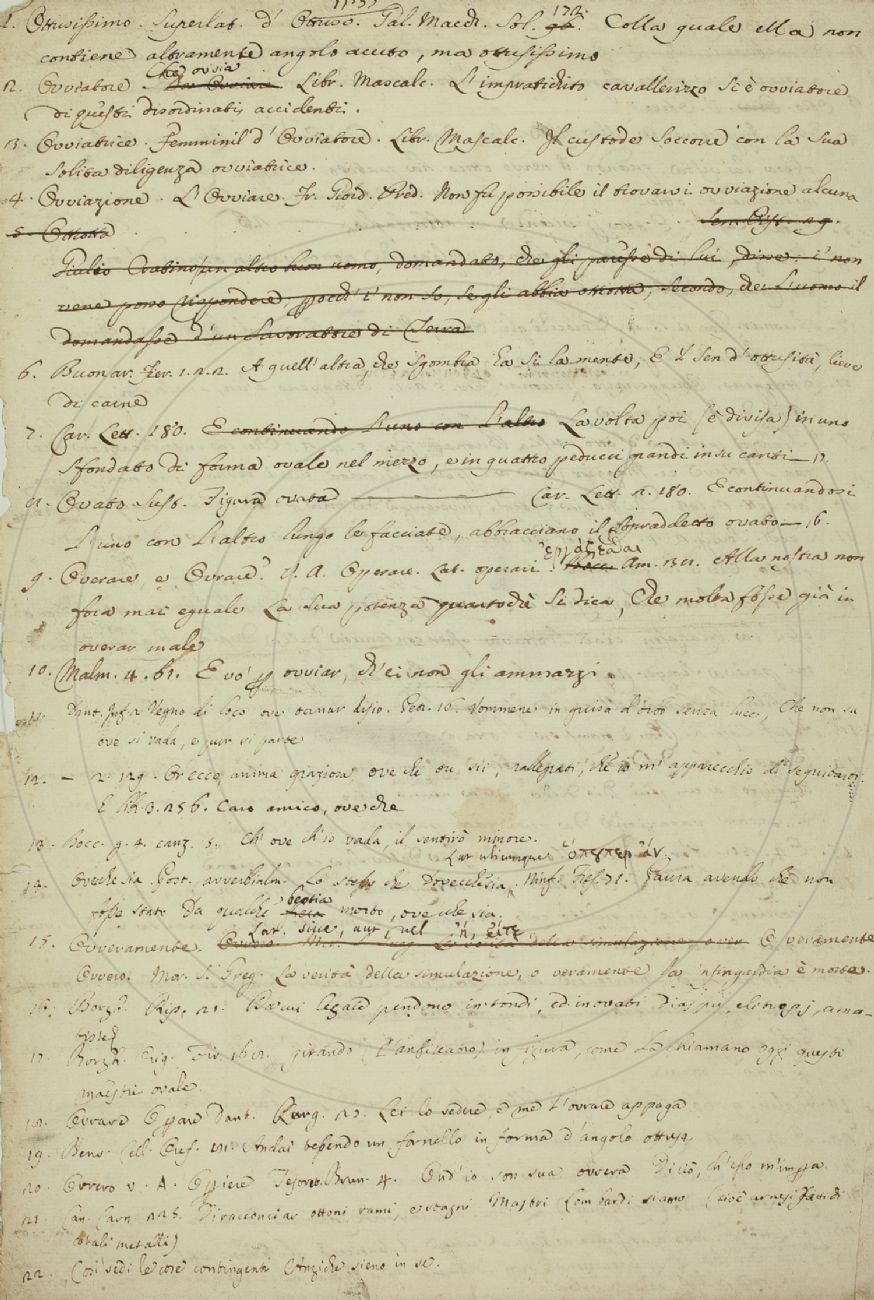 1. Ottusissimo. Superlat. d' Ottuso. Gal. Macch. Sol. 172. Colla quale ella non
contiene altramente angolo accuto, ma ottusissimo
2. Ovviatore. Che ovvia Libr. Mascalc. L'impratichito cavallerizzo si è ovviatore
di questi disordinati accidenti.
3. Ovviatrice. Femminil d' Ovviatore. Libr. Mascalc. Il custode soccorre con la sua
solita diligenza ovviatrice.
4. Ovviazione. L'Ovviare. Fr. Giord. Pred. Non fu possibile il trovarvi ovviazione alcuna
5. Ottotta
un altro uomo, domandato, che gli paresse di lui, disse: i' non
viene posso rispondere, i' non so, se gli abbia ottotta, secondo, che l'uomo il
domandasse d'un Lavoratore di Terra
6. Buonar. Fier. 1. 2. 2. A quell'altra, che sgombra ha sì la mente, E 'l sen d'ottusità, lieve
di carne
7. Car. Lett. 180. E continuando l'uno con l'altro La volta poi (è divisa) in uno
sfondato di forma ovale nel mezzo, e in quattro peducci grandi in su canti
Ovato Sust. Figura ovata Car. Lett. 2. 180. E continuandosi
l'uno con l'altro lungo le facciate, abbracciano il sopraddetto ovato 16.
9. Overare, e Ovrare. V. A. Operare. Lat. operari. Am. Alla nostra non
fora mai eguale La sua potenza si dica, Che molta fosse già in
overar male
10. Malm. 4. 61. E vò ovviar, ch'ei non gli ammazzi.
11. Dant. Inf. 2 Vegno di loco ove tornar disio. Petr. 16. Vommene in guisa d'orbo senza luce, Che non sa
ove si vada, e pur si parte
12. – 2. 129. Or ecco, anima graziosa, ove che tu sii, rallegrati, che io m'apparecchio di seguitarti
E 3. 256. Caro amico, ove che
13. Bocc. g. 4. canz. 5. Ch'ove ch'io vada, il sentirò minore.
Lat. ubicumque
14. Ovechesia. Post. avverbialm. Lo stesso che Dovechesia. Ninf. Fies. 71. Paura avendo che non
fosse stato da qualche bestia morto, ove che sia.
Lat. sive, aut, vel ἤ, εἴτε
15. Ovveramente. O veramente
Ovvero. Mor. S. Greg. La verità della simulazione, o veramente la infingardia è morta.
16. Borgh. Rip. 21. legate pendono in tondi, ed in ovati Diaspri, elitropj, ama-
tiste
17. Borgh. Orig. Fir. girando (l'anfiteatro) in figura, come la chiamano oggi questi
maestri ovale
18. Ovrare Oprare Dant. Purg. 27. Lei lo vedere, e me l'ovrare appaga
19. Benv. Cell. Oref. Andai battendo un farnello in forma d'angolo ottuso
20. Ovvero v. A. Tesoro. Brun. 4. Ond'io son sua ovvera Di ciò, ch'esso m'impera
21. Can. Carn. 225. Di racconciar ottoni rami, e stagni Mastri Lombardi siamo (cioè arnesi fatti di
cotali metalli)
22. Così vedi le cose contingenti Anziche sieno in se.